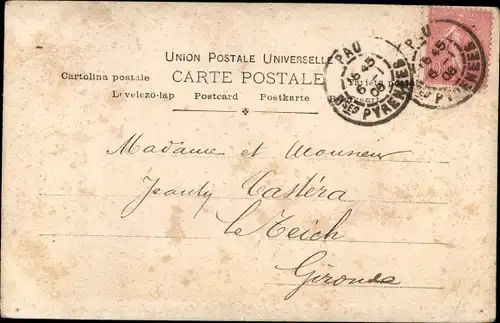 UNION POSTALE UNIVERSELLE
Cartolina postale CARTE POSTALE
Levelezö-lap Postcard Postkarte
PAU
16 45
6 1
06
BSES PYRENEES
PAU
16 45
6 1
06
BSES PYRENEES
Madame et Monsieur
Castéra
le Teich
Gironde